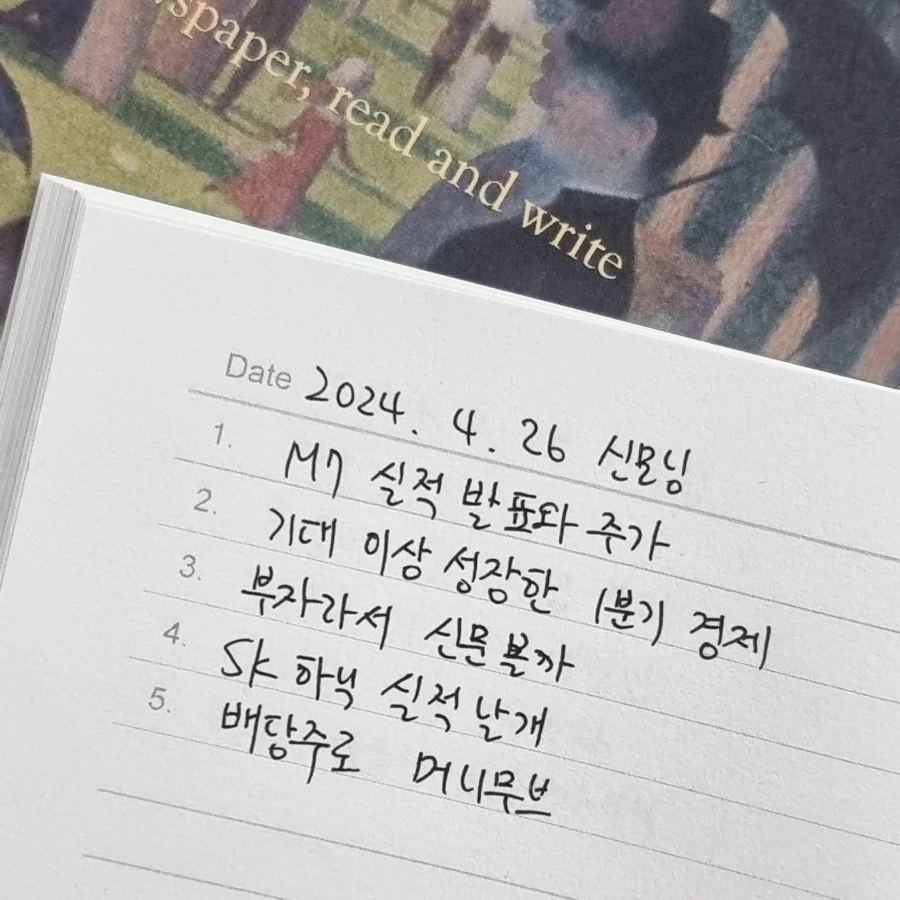 spaper, read and write
Date 2024. 4. 26 신모닝
1. M7 실적 발표와 주가
2. 기대 이상 성장한 1분기 경제
3. 부자라서 신문볼까
4. SK 하닉 실적 날개
5. 배당주로 머니무브